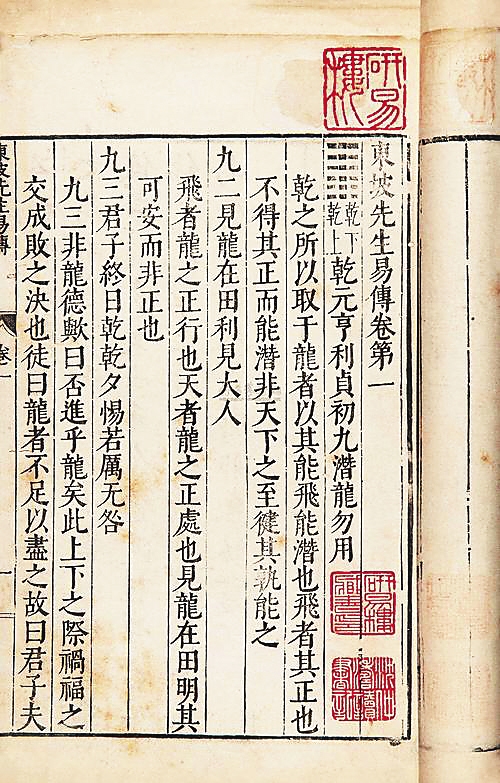 東坡先生易傳卷第一
乾下乾上乾元亨利貞初九潛龍勿用
乾之所以取于龍者以其能飛能潛也飛者其正也
不得其正而能潛非天下之至健其孰能之
九二見龍在田利見大人
飛者龍之正行也天者龍之正處也見龍在田明其
可安而非正也
九三君子終日乾乾夕惕若厲无咎
九三非龍德歟曰否進乎龍矣此上下之際禍福之
交成敗之決也徒曰龍者不足以盡之故曰君子夫
東坡先生易傳 卷一 一
研易樓
研易樓